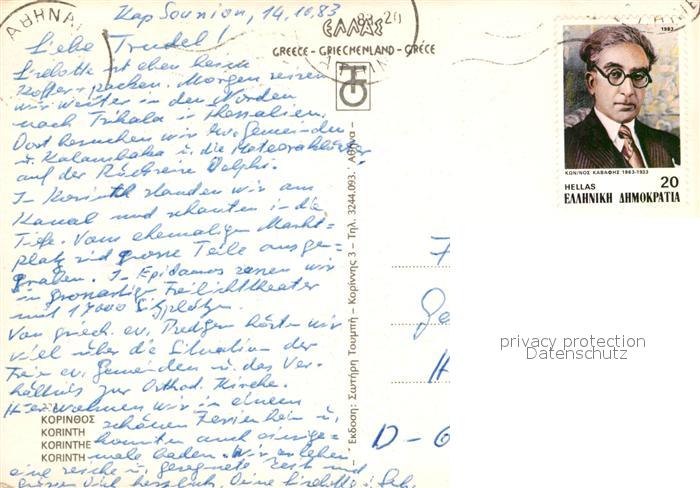 ΑΘΗΝΑΙ
Kap Sounion, 14.10.83
83-20
ΕΛΛΑΣ
GREECE - GRIECHENLAND - GRÈCE
Liebe Trudel!
Liselotte ist eben beim
Koffer packen. Morgen reisen
wir weiter in den Norden
nach Trikala in Thessalien.
Dort besuchen wir ev. Gemeinden
u. Kalambaka u. die Meteoraklöster
auf der Rückreise Delphi.
In Korinth standen wir am
Kanal und schauten in die
Tiefe. Vom ehemaligen Markt=
platz sind grosse Teile ausge=
graben. In Epidauros sassen wir
in grossartige Freilichttheater
mit 17000 Sitzplätzen.
Von griech. ev. Predigern hörten wir
viel über die Situation der
Frei ev. Gemeinden u. das Ver=
hältnis zur Orthod. Kirche.
Hier wohnen wir in einem
schönen Ferienheim u.
konnten auch einige=
male baden. Wir erleben
eine reiche u. gesegnete Zeit und
grüssen Dich herzlich, Deine Liselotte
ΚΟΡΙΝΘΟΣ
KORINTH
KORINTHE
KORINTH
Εκδοση: Σωτήρη Τουμπή – Κορίννης 3 – Τηλ. 3244.093. Αθήνα –
D-6
1983
ΚΩΝ/ΝΟΣ ΚΑΒΑΦΗΣ 1863-1933
HELLAS 20
ΕΛΛΗΝΙΚΗ ΔΗΜΟΚΡΑΤΙΑ
privacy protection
Datenschutz